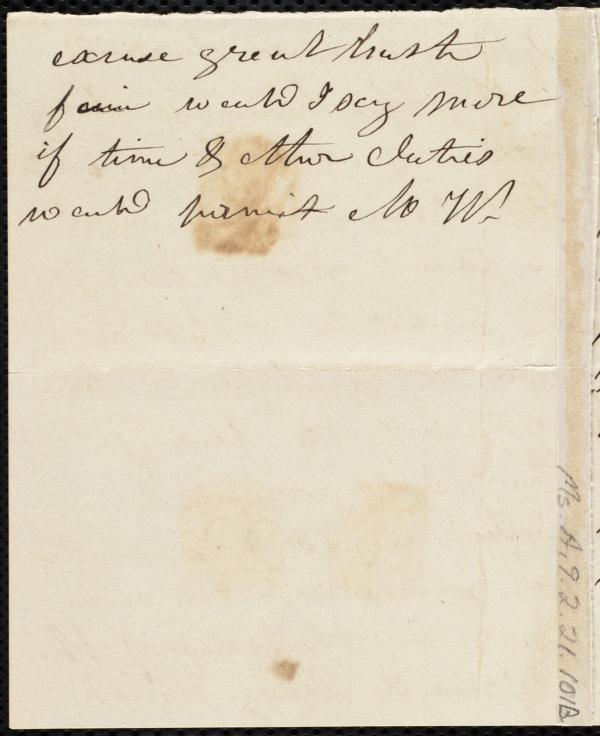 excuse great haste
fain would I say more
if time & other duties
would permit M W.
Ms. A.9.2.21.101B